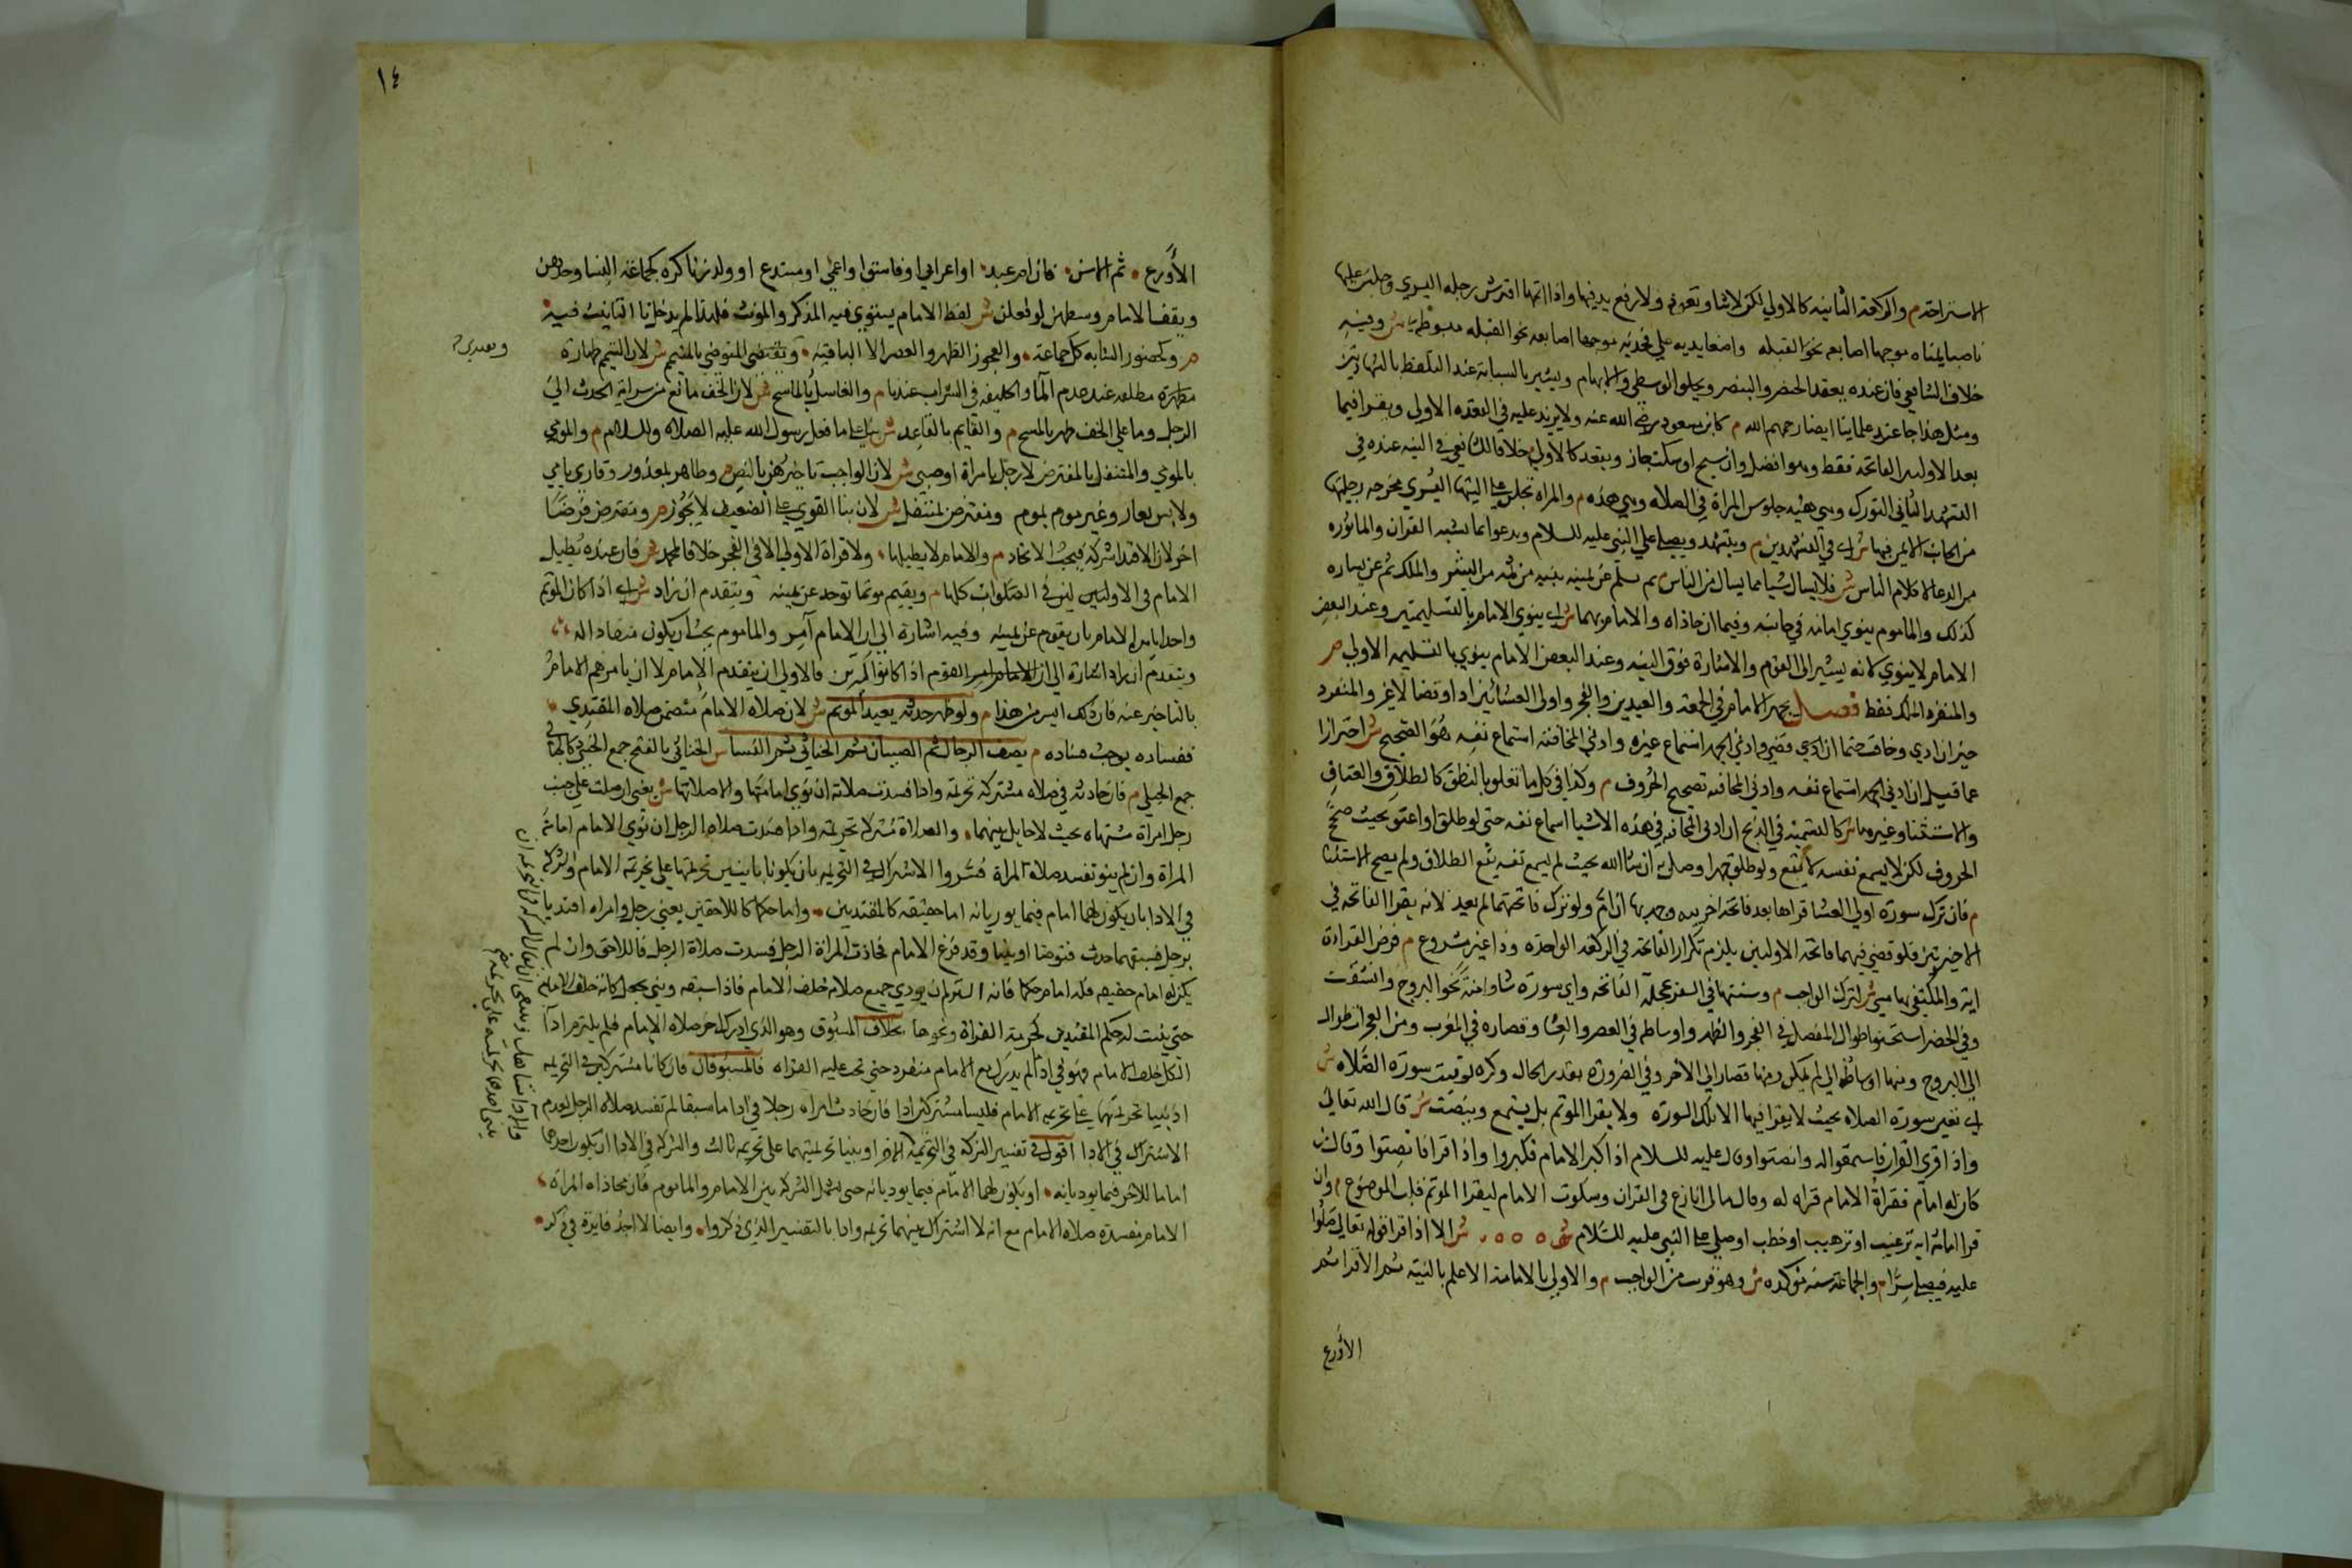 الاستراحة م والركعة الثانية كالاولي لكن لا ثنا وتعوذ ولا رفع يد فيها واذا اتمها افترش رجله اليسري وجلس عليها
ناصبا يمناه موجها اصابعه نحو القبلة واضعا يديه علي فخذيه موجها اصابعه نحو القبلة مبسوطة ش وفيه
خلاف الشافعي فان عنده يعقد الخنصر والبنصر ويحلق الوسطي والابهام ويشير بالسبابة عند التلفظ بالشهادتين
ومثل هذا جا عن علمائنا ايضا رحمهم الله م كابن مسعود رضي الله عنه ولا يزيد عليه في القعدة الاولي ويقرا فيما
بعد الاوليين الفاتحة فقط وهو افضل وان سبح او سكت جاز ويقعد كالاولي خلافا للشافعي في السنة عنده في
التشهد الثاني التورك وهي هيئة جلوس المراة في الصلاه وهي هذه م والمراة تجلس على اليتها اليسري مخرجة رجليها
من الجانب الايمن فيهما ش اي في التشهدين م ويتشهد ويصلي علي النبي عليه السلام ويدعو بما يشبه القران والماثوره
من الدعا لا كلام الناس ش فلا يسال شيا مما يسال من الناس م ثم يسلم عن يمينه بنية من ثمه من البشر والملك ثم عن يساره
كذلك والماموم ينوي امامه في جانبه وفيهما ان حاذاه والامام بهما ش اي ينوي الامام بالتسليمتين وعند البعض
الامام لا ينوي لانه يشير الي القوم والاشارة فوق النية وعند البعض الامام ينوي بالتسليمة الاولي م
والمنفرد الملك فقط فصل يجهر الامام في الجمعة والعيدين والفجر واولي العشائين ادا وقضا لا غير والمنفرد
خير ان ادي وخافت حتما ان قضي وادني الجهر اسماع غيره وادني المخافتة اسماع نفسه هو الصحيح ش احترازا
عما قيل ان ادني الجهر اسماع نفسه وادني المخافتة تصحيح الحروف م وكذا في كل ما تعلق بالنطق كالطلاق والعتاق
والاستثنا وغيرها ش كالتسمية في الذبح اي ادني المخافتة في هذه الاشيا اسماع نفسه حتي لو طلق او اعتق بحيث صحح
الحروف لكن لا يسمع نفسه لا يقع ولو طلق جهرا وصل به ان شا الله بحيث لم يسمع نفسه يقع الطلاق ولم يصح الاستثنا
م فان ترك سورة اولي العشا قراها بعد فاتحة اخرييه وجهر بها ان ام ولو ترك فاتحتهما لم يعد لانه يقرا الفاتحة في
الاخيرتين فلو قضي فيهما فاتحة الاوليين يلزم تكرار الفاتحة في الركعة الواحدة وذا غير مشروع م فرض القراءة
اية والمكتفي بها مسي ش لترك الواجب م وسنتها في السفر عجلة الفاتحة واي سورة شا وامنة نحو البروج وانشقت
وفي الحضر استحسنوا طوال المفصل في الفجر والظهر واوساطه في العصر والعشا وقصاره في المغرب ومن الحجرات طواله
الي البروج ومنها اوساطه الي لم يكن ومنها قصاره الي الاخر وفي الضرورة بقدر الحال وكره توقيت سورة الصلاه ش
اي تعيين سورة الصلاه بحيث لا يقرا فيها الا تلك السورة ولا يقرا الموتم بل يستمع وينصت ش قال الله تعالي
واذا قري القران فاستمعوا له وانصتوا وقال عليه السلام اذا كبر الامام فكبروا واذا قرا فانصتوا وقال من
كان له امام فقراة الامام قراه له وقال مالي انازع في القران وسكوت الامام ليقرا الموتم قلب الموضوع م وان
قرا امامه اية ترغيب او ترهيب او خطب او صلي على النبي عليه السلام ش ش الا اذا قرا قوله تعالي صلوا
عليه فيصلي سرا م والجماعة سنة موكده ش وهو قريب من الواجب م والاولي بالامامة الاعلم بالسنة ثم الاقرا ثم
الاورع
١٤
الاورع ثم الاسن فان ام عبد او اعرابي او فاسق او اعمي او مبتدع او ولد زنا كره كجماعة النسا وحدهن
ويقف الامام وسطهن لو فعلن ش لفظ الامام يستوي فيه المذكر والمونث فلهذا لم يدخل تا التانيث فيه
م وكحضور الشابة كل جماعة والعجوز الظهر والعصر لا الباقية ويقتدي المتوضي بالمتيمم ش لان التيمم طهارة
ويقتدي
مطلقة عند عدم الما والخليفة في التراب عندنا م والغاسل بالماسح ش لان الخف مانع من سراية الحدث الي
الرجل وما علي الخف طهر بالمسح م والقايم بالقاعد ش بناء على ما فعل رسول الله عليه الصلاه والسلام م والمومي
بالمومي والمتنفل بالمفترض لا رجل بامراة او صبي ش لان الواجب تاخيرهن بالنص م وطاهر بمعذور وقاري بامي
ولابس بعار وغير موم بموم ومفترض بمتنفل ش لان بنا القوي على الضعيف لا يجوز م ومفترض فرضا
اخر لان الاقتدا شركة فيجب الاتحاد م والامام لا يطيلها ولا قراة الاولي الا في الفجر خلافا لمحمد ش فان عنده يطيل
الامام في الاوليين في الصلوات كلها م ويقيم موتما توحد عن يمينه ويتقدم ان زاد ش اي اذا كان الموتم
واحدا يامره الامام بان يقوم عن يمينه وفيه اشارة الي ان الامام آمر والماموم يجب ان يكون منقادا له
ويتقدم ان زاد اشارة الي ان القوم اذا كانوا كثيرين فالاولي ان يتقدم الامام لا ان يامرهم الامام
بالتاخير عنه فان ذلك ايسر من هذا م ولو ظهر حدثه يعيد الموتم ش لان صلاه الامام متضمن صلاه المقتدي
ففساده يوجب فساده م يصف الرجال ثم الصبيان ثم الخناثي ثم النسا ش الخناثي بالفتح جمع الخنثي كالحبالي
جمع الحبلي م فان حاذته في صلاه مشتركة تحريمة وادا فسدت صلاته ان نوي امامتها والا صلاتها ش يعني ان صلت علي جنب
رجل امراة مشتهاة بحيث لا حايل بينهما والصلاة مشتركة تحريمة وادا فسدت صلاه الرجل ان نوي الامام امامة
المراة وان لم ينو تفسد صلاة المراة فسروا الاشتراك في التحريمة بان يكونا بانيين تحريمتهما علي تحريمة الامام والشركة
في الادا بان يكون لهما امام فيما يوديانه اما حقيقة كالمقتديين واما حكما كاللاحقين يعني رجل وامراه اقتديا
برجل فسبقهما حدث فتوضا وبنيا وقد فرغ الامام فحاذت المراة الرجل فسدت صلاة الرجل فاللاحق وان لم
يكن له امام حقيقة فله امام حكما فانه التزم ان يودي جميع صلاته خلف الامام فاذا سبقه وبني يجعل كانه خلف الامام
حتي يثبت له حكم المقتدين كحرمة القراة ونحوها بخلاف المسبوق وهو الذي ادرك اخر صلاه الامام فلم يلتزم ادا
الكل خلف الامام فهو في ادا ما لم يدرك مع الامام منفرد حتي تجب عليه القراه فالمسبوقان وان كانا مشتركين في التحريمة
اذ بنيا تحريمتهما على تحريمة الامام فليسا مشتركين ادا فان حاذت امراه رجلا في ادا ما سبقا لم تفسد صلاه الرجل لعدم
الاشتراك في الادا اقول في تفسير الشركة في التحريمة او بنيا تحريمتهما على تحريمة ثالث والشركة في الادا ان يكون احدهما
اماما للاخر فيما يوديانه او يكون لهما الامام فيما يوديانه حتي يشمل الشركة بين الامام والماموم فان محاذاه المراة
الامام مفسدة صلاه الامام مع انه لا اشتراك بينهما تحريمة وادا بالتفسير الذي ذكروا وايضا لا اجد فايدة في ذكر